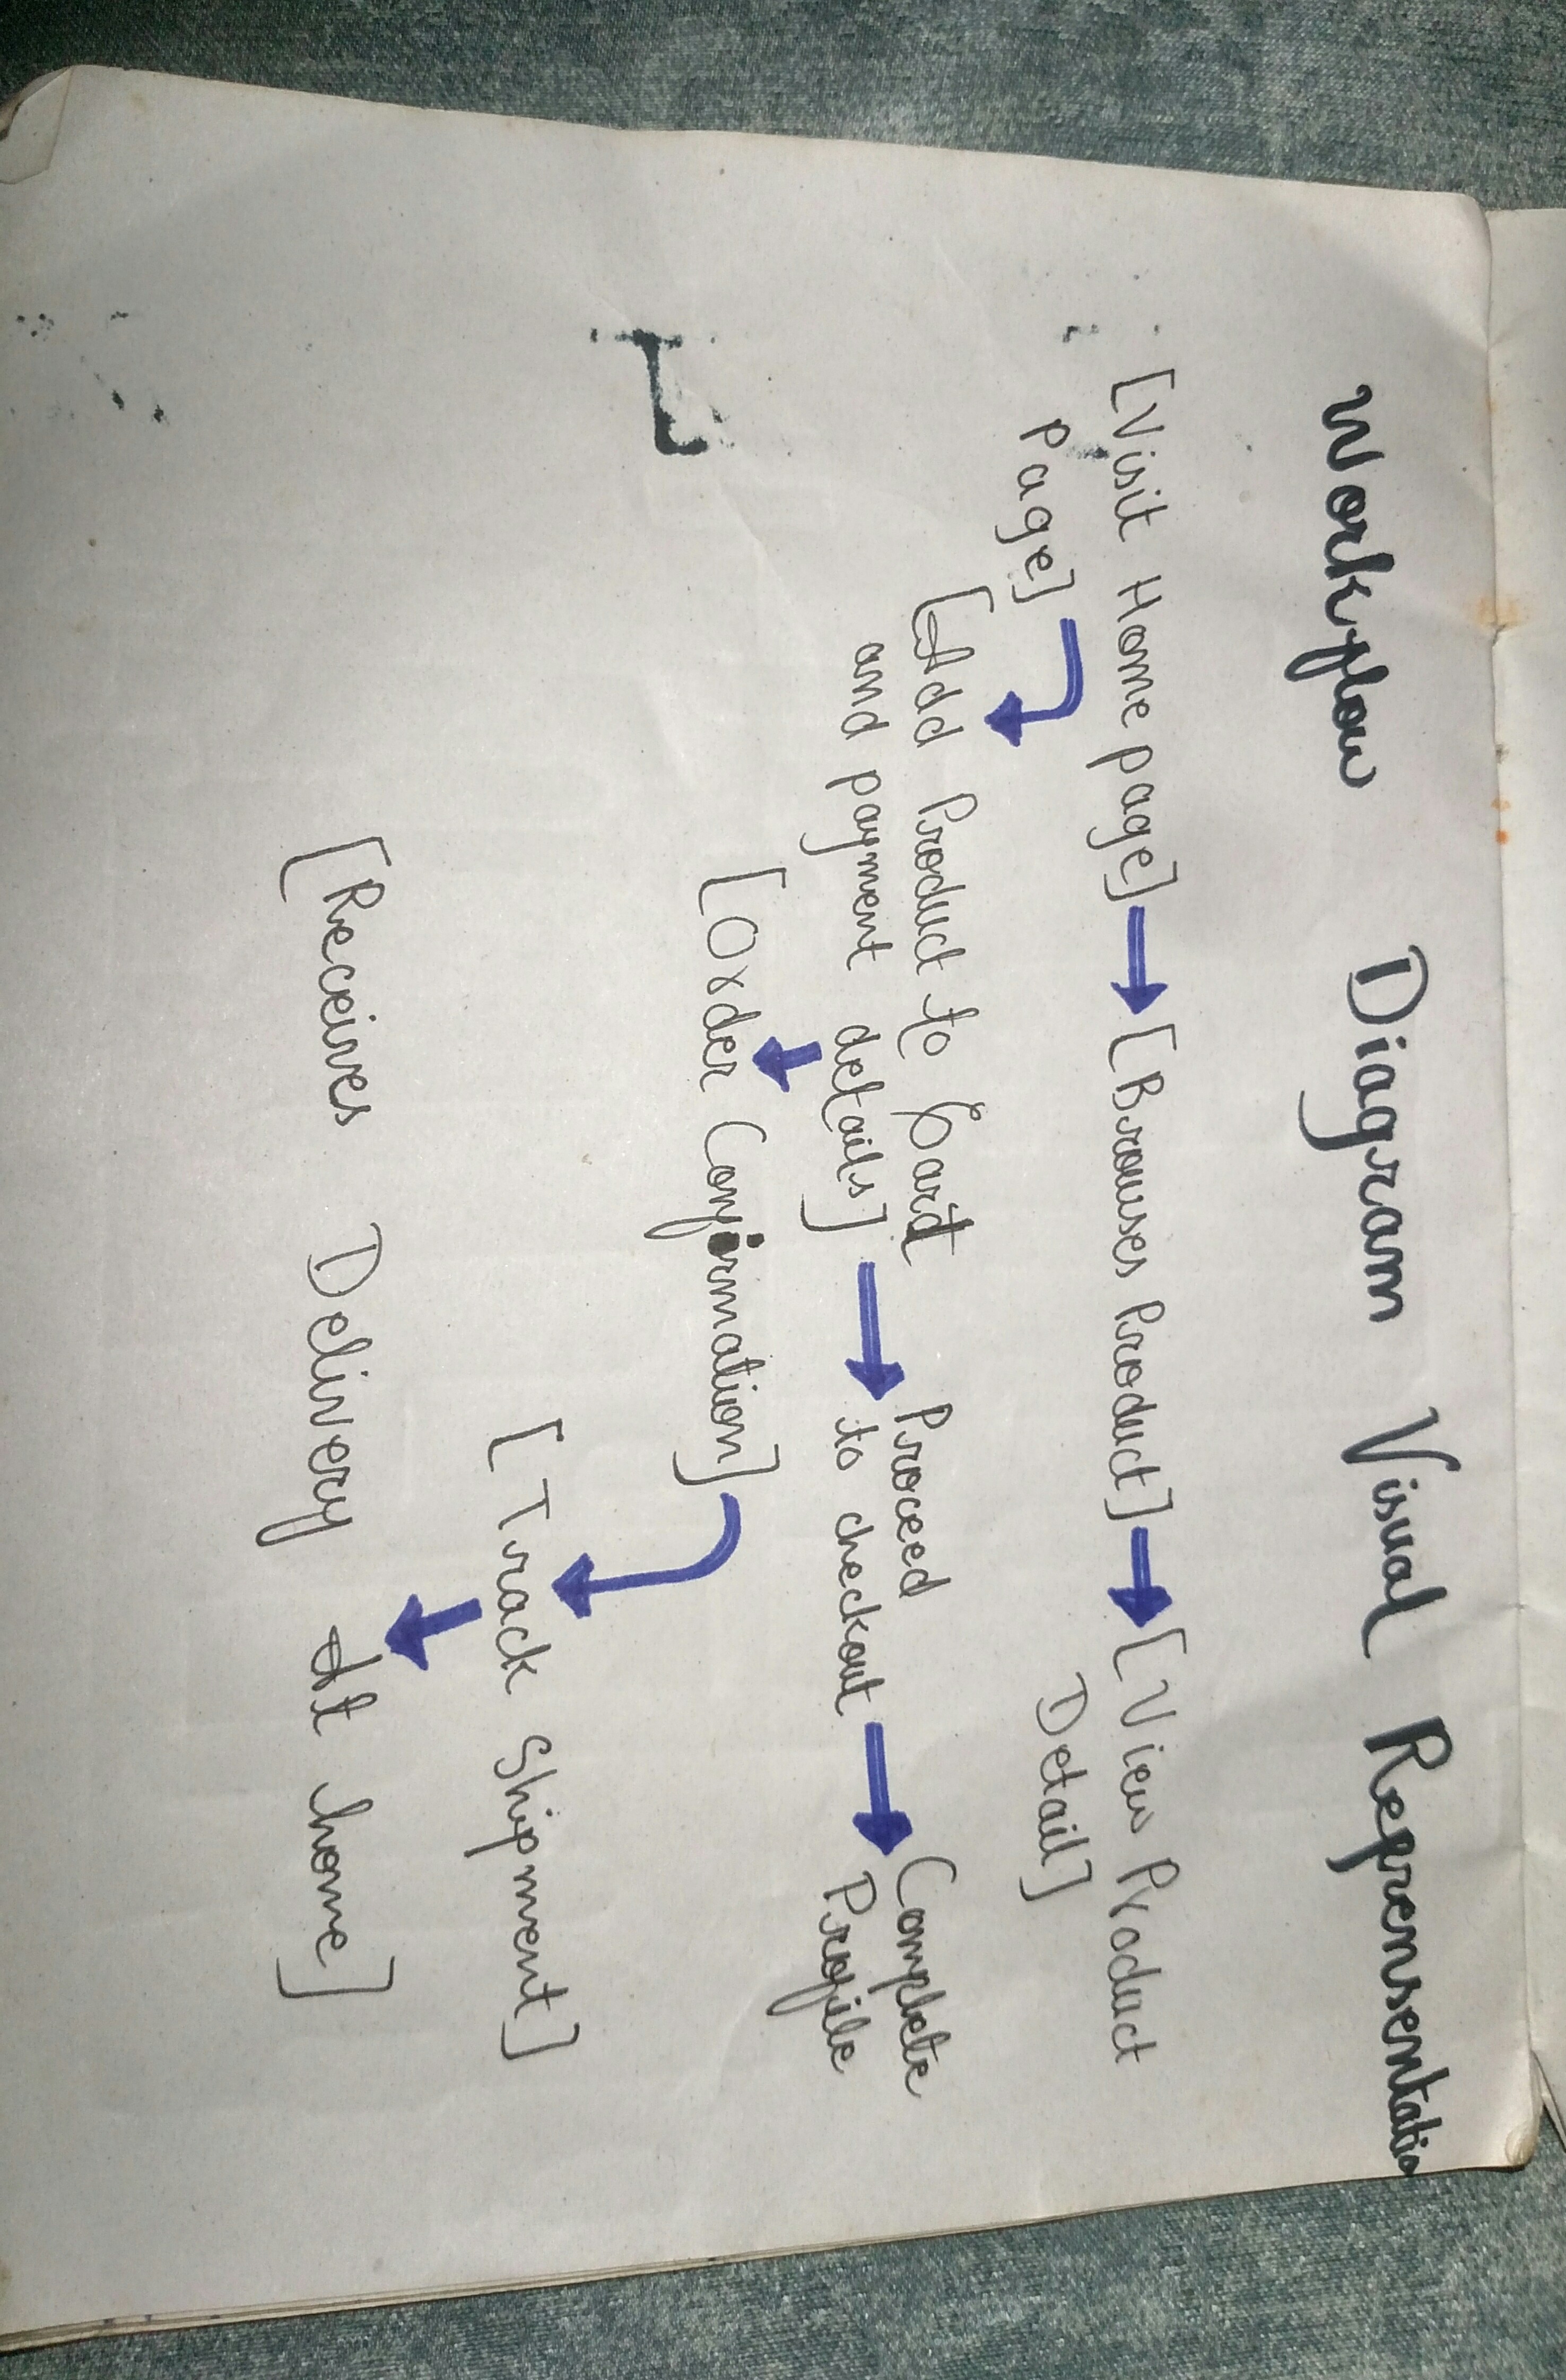 Workflow Diagram Visual Reprensentatio
[Visit Home page] [Browses Product] [View Product
Page] Detail]
[Add Product to Cart Proceed Complete
and payment details] to checkout Profile
[Order Confirmation]
[Track Shipment]
[Receives Delivery At home]